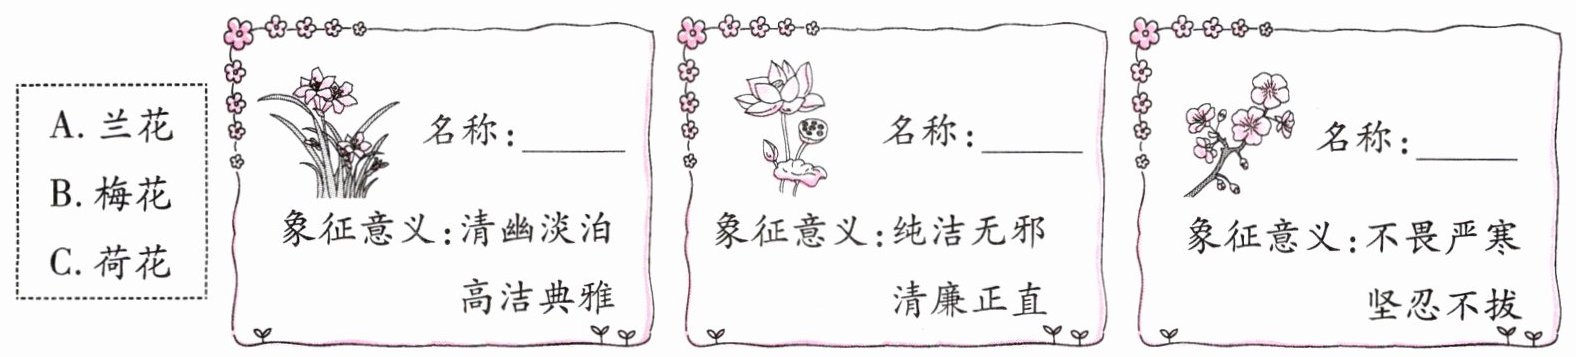 A. 兰花
B. 梅花
C. 荷花
名称:______
象征意义:清幽淡泊
高洁典雅
名称:______
象征意义:纯洁无邪
清廉正直
名称:______
象征意义:不畏严寒
坚忍不拔